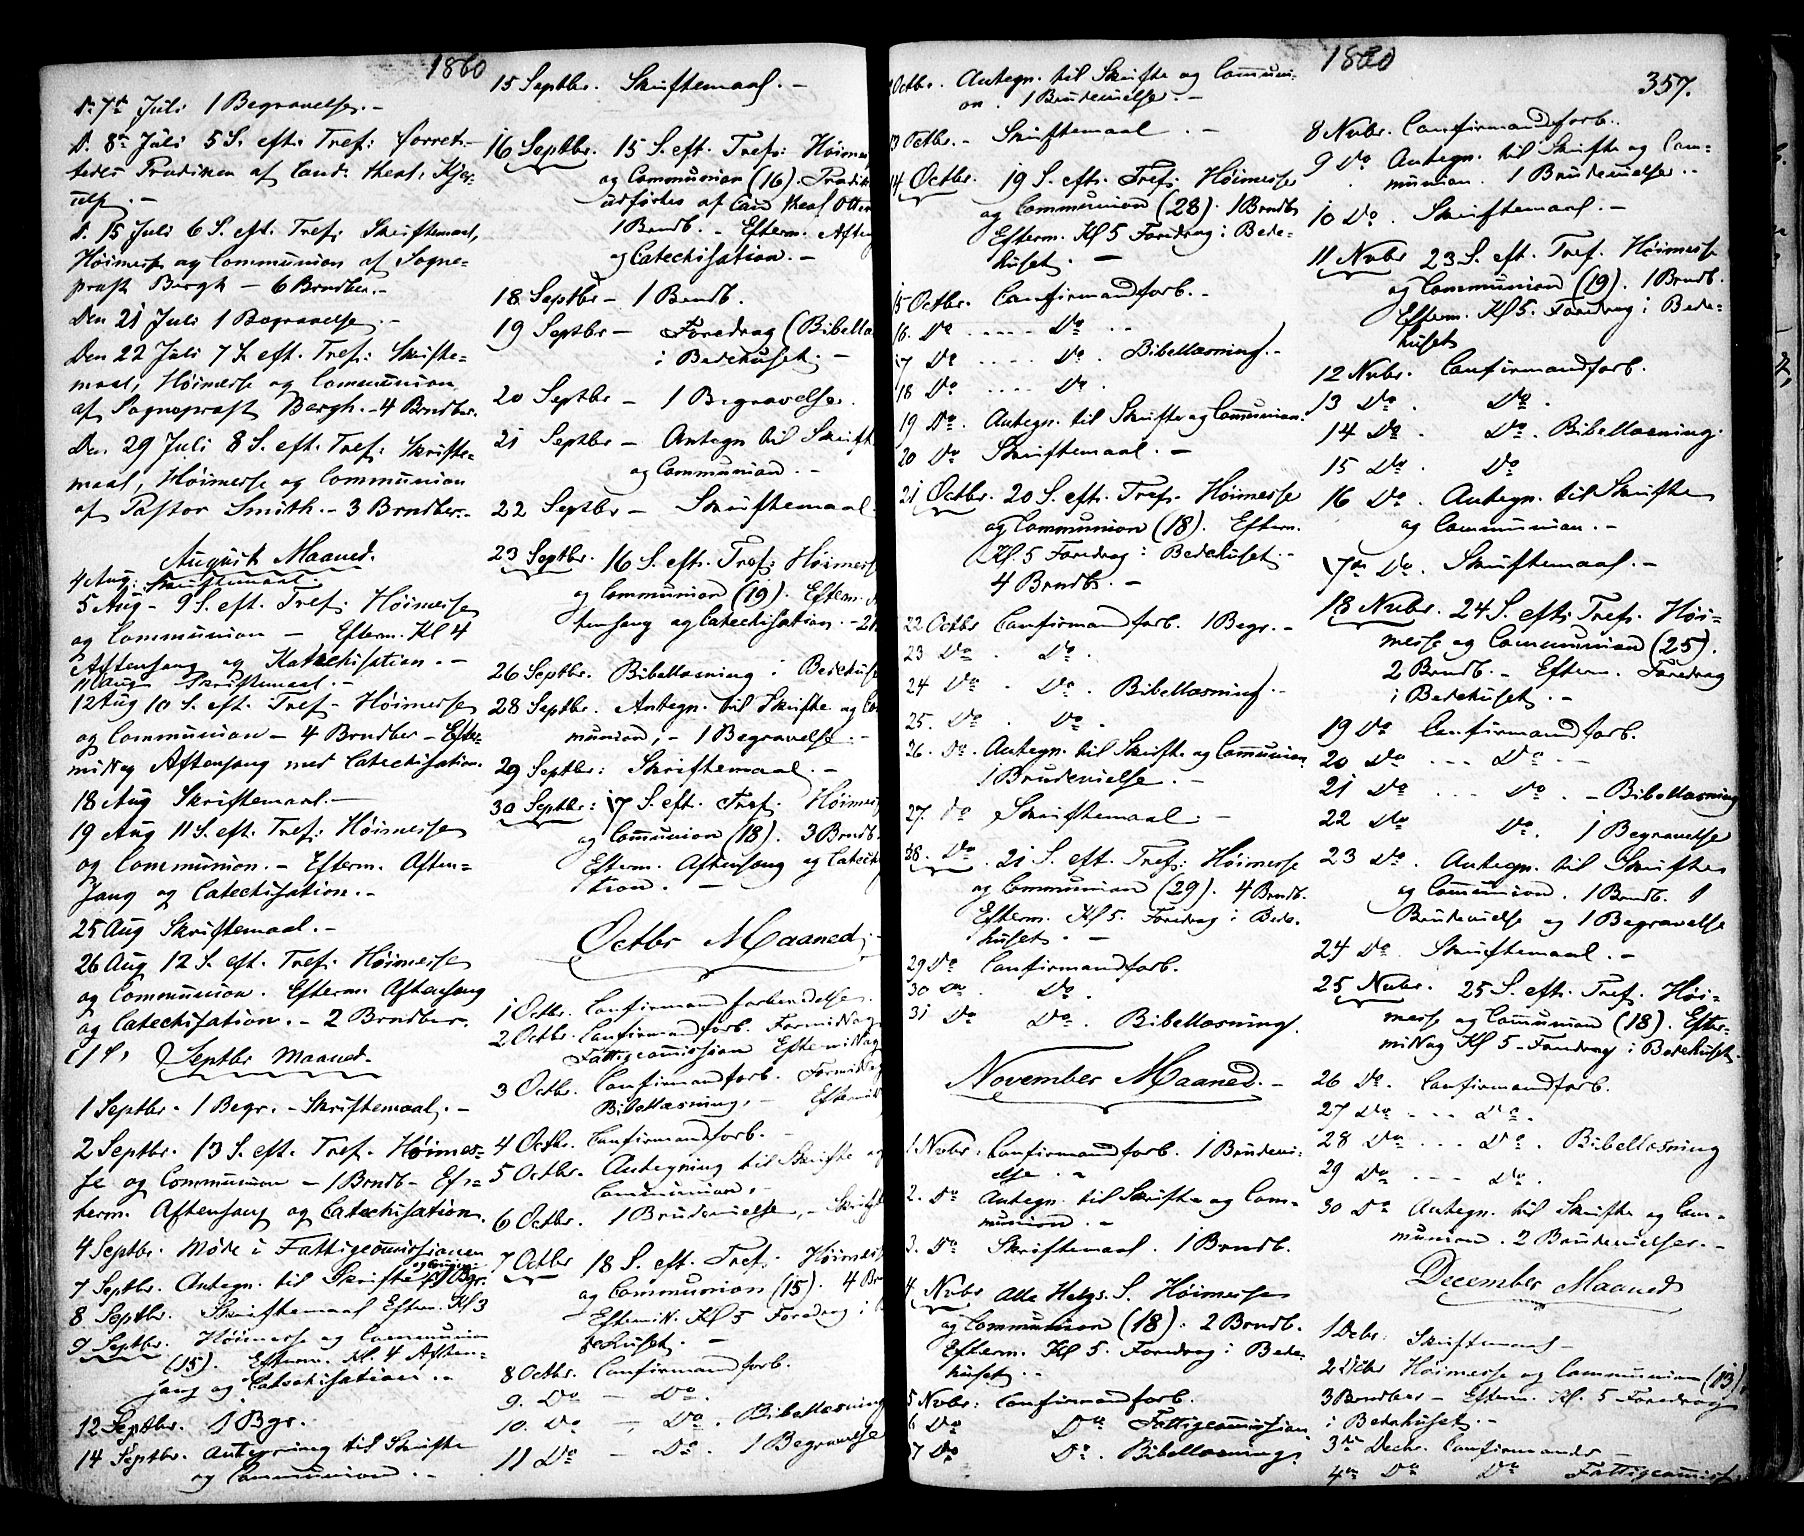 1860
D. 7de Juli 1 Begravelse. –
D. 8de Juli 5 S. eft. Tref: forret-
tedes Prædiken af Cand: theol. Kjer-
ulf. –
D. 15 Juli 6 S. eft. Tref: Skriftemaal,
Høimesse og Communion af Sogne-
præst Bergh – 6 Brndber. –
Den 21 Juli 1 Begravelse. –
Den 22 Juli 7 S. eft. Tref: Skrifte-
maal, Høimesse og Communion
af Sognepræst Bergh. – 4 Brndber.
Den 29 Juli 8 S. eft. Tref: Skrifte-
maal, Høimesse og Communion
af Pastor Smith. – 3 Brndber. –
August Maaned.
4 Aug: Skriftemaal.
5 Aug – 9 S. eft. Tref: Høimesse
og Communion – Efterm. Kl 4
Aftensang og Katechisation. –
11 Aug Skriftemaal. –
12 Aug 10 S. eft. Tref – Høimesse
og Communion – 4 Brndber – Efter-
middag Aftensang med Catechisation.
18 Aug Skriftemaal. –
19 Aug 11 S. eft. Tref: Høimesse
og Communion. – Efterm. Aften-
sang og Catechisation. –
25 Aug Skriftemaal. –
26 Aug 12 S. eft. Tref: Høimesse
og Communion. Efterm Aftensang
og Catechisation. – 2 Brndber.
Septbr Maaned.
1 Septbr. 1 Begr. – Skriftemaal. –
2 Septbr. 13 S. eft. Tref. Høimes-
se og Communion – 1 Brndb – Ef-
term. Aftensang og Catechisation.
4 Septbr. Møde i Fattigcomissionen
7 Septbr. Antegn. til Skrifte 1 Bgr.
8 Septbr. Skriftemaal Efterm. Kl 3
9 Septbr. Høimesse og Communion
(15). Efterm. Kl. 4 Aften-
sang og Catechisation. –
12 Septbr. 1 Bgr.
14 Septbr. Antegning til Skrifte
og Communion. –
15 Septbr. Skriftemaal. –
16 Septbr. 15 S. eft. Tref: Høimes
og Communion (16). Prædik
udførtes af Cand theol Otter
1 Brndb. – Efterm. Aften
og Catechisation. –
18 Septbr – 1 Brndb.
19 Septbr – Foredrag (Bibellæ
i Bedehuset. –
20 Septbr – 1 Begravelse.
21 Septbr – Antegn til Skrift
og Communion. –
22 Septbr – Skriftemaal.
23 Septbr. 16 S. eft. Tref: Høimesse
og Communion (19). Efterm. A
tensang og Catechisation. –
26 Septbr. Bibellæsning i Bedehuse
28 Septbr. Antegn. til Skrifte og Co
munion, – 1 Begravelse. –
29 Septbr: Skriftemaal. –
30 Septbr: 17 S. eft. Tref. Høimes
og Communion (18). 3 Brndb.
Efterm. Aftensang og Catechi
tion. –
Octbr Maaned. –
1 Octbr. Confirmandforberedelse.
2 Octbr. Confirmandforb. Formiddag
Fattigcomission Eftermiddag
3 Octbr. Confirmandforb. Formiddag
Bibellæsning, – Eftermid
4 Octbr. Confirmandforb. –
5 Octbr. Antegning til Skrifte og
Communion, –
6 Octbr. 1 Brudevielse, – Skrift
7 Octbr 18 S. eft. Tref. Høimesse
og Communion (15). 4 Br
Eftermid. Kl 5 Foredrag i B
dehuset. –
8 Octbr. Confirmandforb.
9. Do – Do.
10. Do – Do. Bibellæsning
11 Do – Do. 1 Begravelse
1860
357.
Octbr. Antegn. til Skrifte og Commun-
on. 1 Brudevielse. –
13 Octbr. – Skriftemaal. –
14 Octbr. 19 S. eft. Tref: Høimesse
og Communion (28). 1 Brndb.
Efterm. Kl 5 Foredrag i Bede-
huset. –
15 Octbr. Confirmandforb. –
16. Do .... Do. ..
17 Do .... Do. Bibellæsning. –
18 Do .... Do.
19 Do. Antegn. til Skrifte og Communion.
20 Do Skriftemaal. –
21 Octbr. 20 S. eft. Tref. Høimesse
og Communion (18). Efterm.
Kl. 5 Foredrag i Bedehuset. –
4 Brndb. –
22 Octbr Confirmandforb. 1 Begr. –
23 Do. Do.
24 Do. Do. Bibellæsning. –
25. Do. Do.
26. Do. Antegn. til Skrifte og Communion
1 Brudevielse. –
27. Do Skriftemaal. –
28. Do. 21 S. eft. Tref: Høimesse
og Communion (29). 4 Brndb.
Efterm. Kl 5. Foredrag i Bede-
huset. –
29 Do Confirmandforb.
30 Do. Do.
31 Do Do. Bibellæsning.
November Maaned. –
1. Nvbr: Confirmandforb. 1 Brudevi-
else. –
2. Do Antegn. til Skrifte og Com-
munion. –
3. Do Skriftemaal. 1 Brndb.
4. Nvbr Alle Helgs. S. Høimesse
og Communion (18). 2 Brndb.
Efterm. Kl 5. Foredrag i Bede-
huset. –
5 Nvbr: Confirmandforb.
6 Do Do Fattigcomission
7 Do Do. Bibellæsning.
8 Nvbr. Confirmandforb.
9 Do Antegn. til Skrifte og Com-
munion. 1 Brudevielse. –
10 Do. Skriftemaal. –
11 Nvbr 23 S. eft. Tref. Høimesse
og Communion (19). 1 Brndb.
Efterm. Kl 5. Foredrag i Bede-
huset
12 Nvbr. Confirmandforb.
13 Do. Do.
14 Do. Do. Bibellæsning.
15 Do. Do
16 Do. Antegn. til Skrifte
og Communion. –
17de Do. Skriftemaal. –
18 Nvbr. 24 S. eft. Tref. Høi-
messe og Communion (25).
2 Brndb. – Efterm. Foredrag
i Bedehuset. –
19 Do Confirmandforb.
20 Do ... Do. --
21 Do ... Do. – Bibellæsning
22 Do Do. 1 Begravelse
23 Do. Antegn. til Skrifte
og Communion. 1 Brndb. 1
Brudevielse og 1 Begravelse
24 Do. Skriftemaal. –
25 Nvbr. 25 S. eft. Tref. Høi-
messe og Communion (18). Efter-
middag Kl 5 – Foredrag i Bedehuset. –
26 Do. Confirmandforb.
27 Do ... Do.
28 Do ... Do. Bibellæsning
29 Do ... Do.
30 Do Antegn. til Skrifte og Com-
munion. 2 Brudevielser. –
December Maaned
1 Dcbr: Skriftemaal –
2 Dcbr Høimesse og Communion (13),
3 Brndber – Efterm. Kl. 5 Foredrag
i Bedehuset. –
3die Decbr. Confirmander –
4de Do Do Fattigcomiss